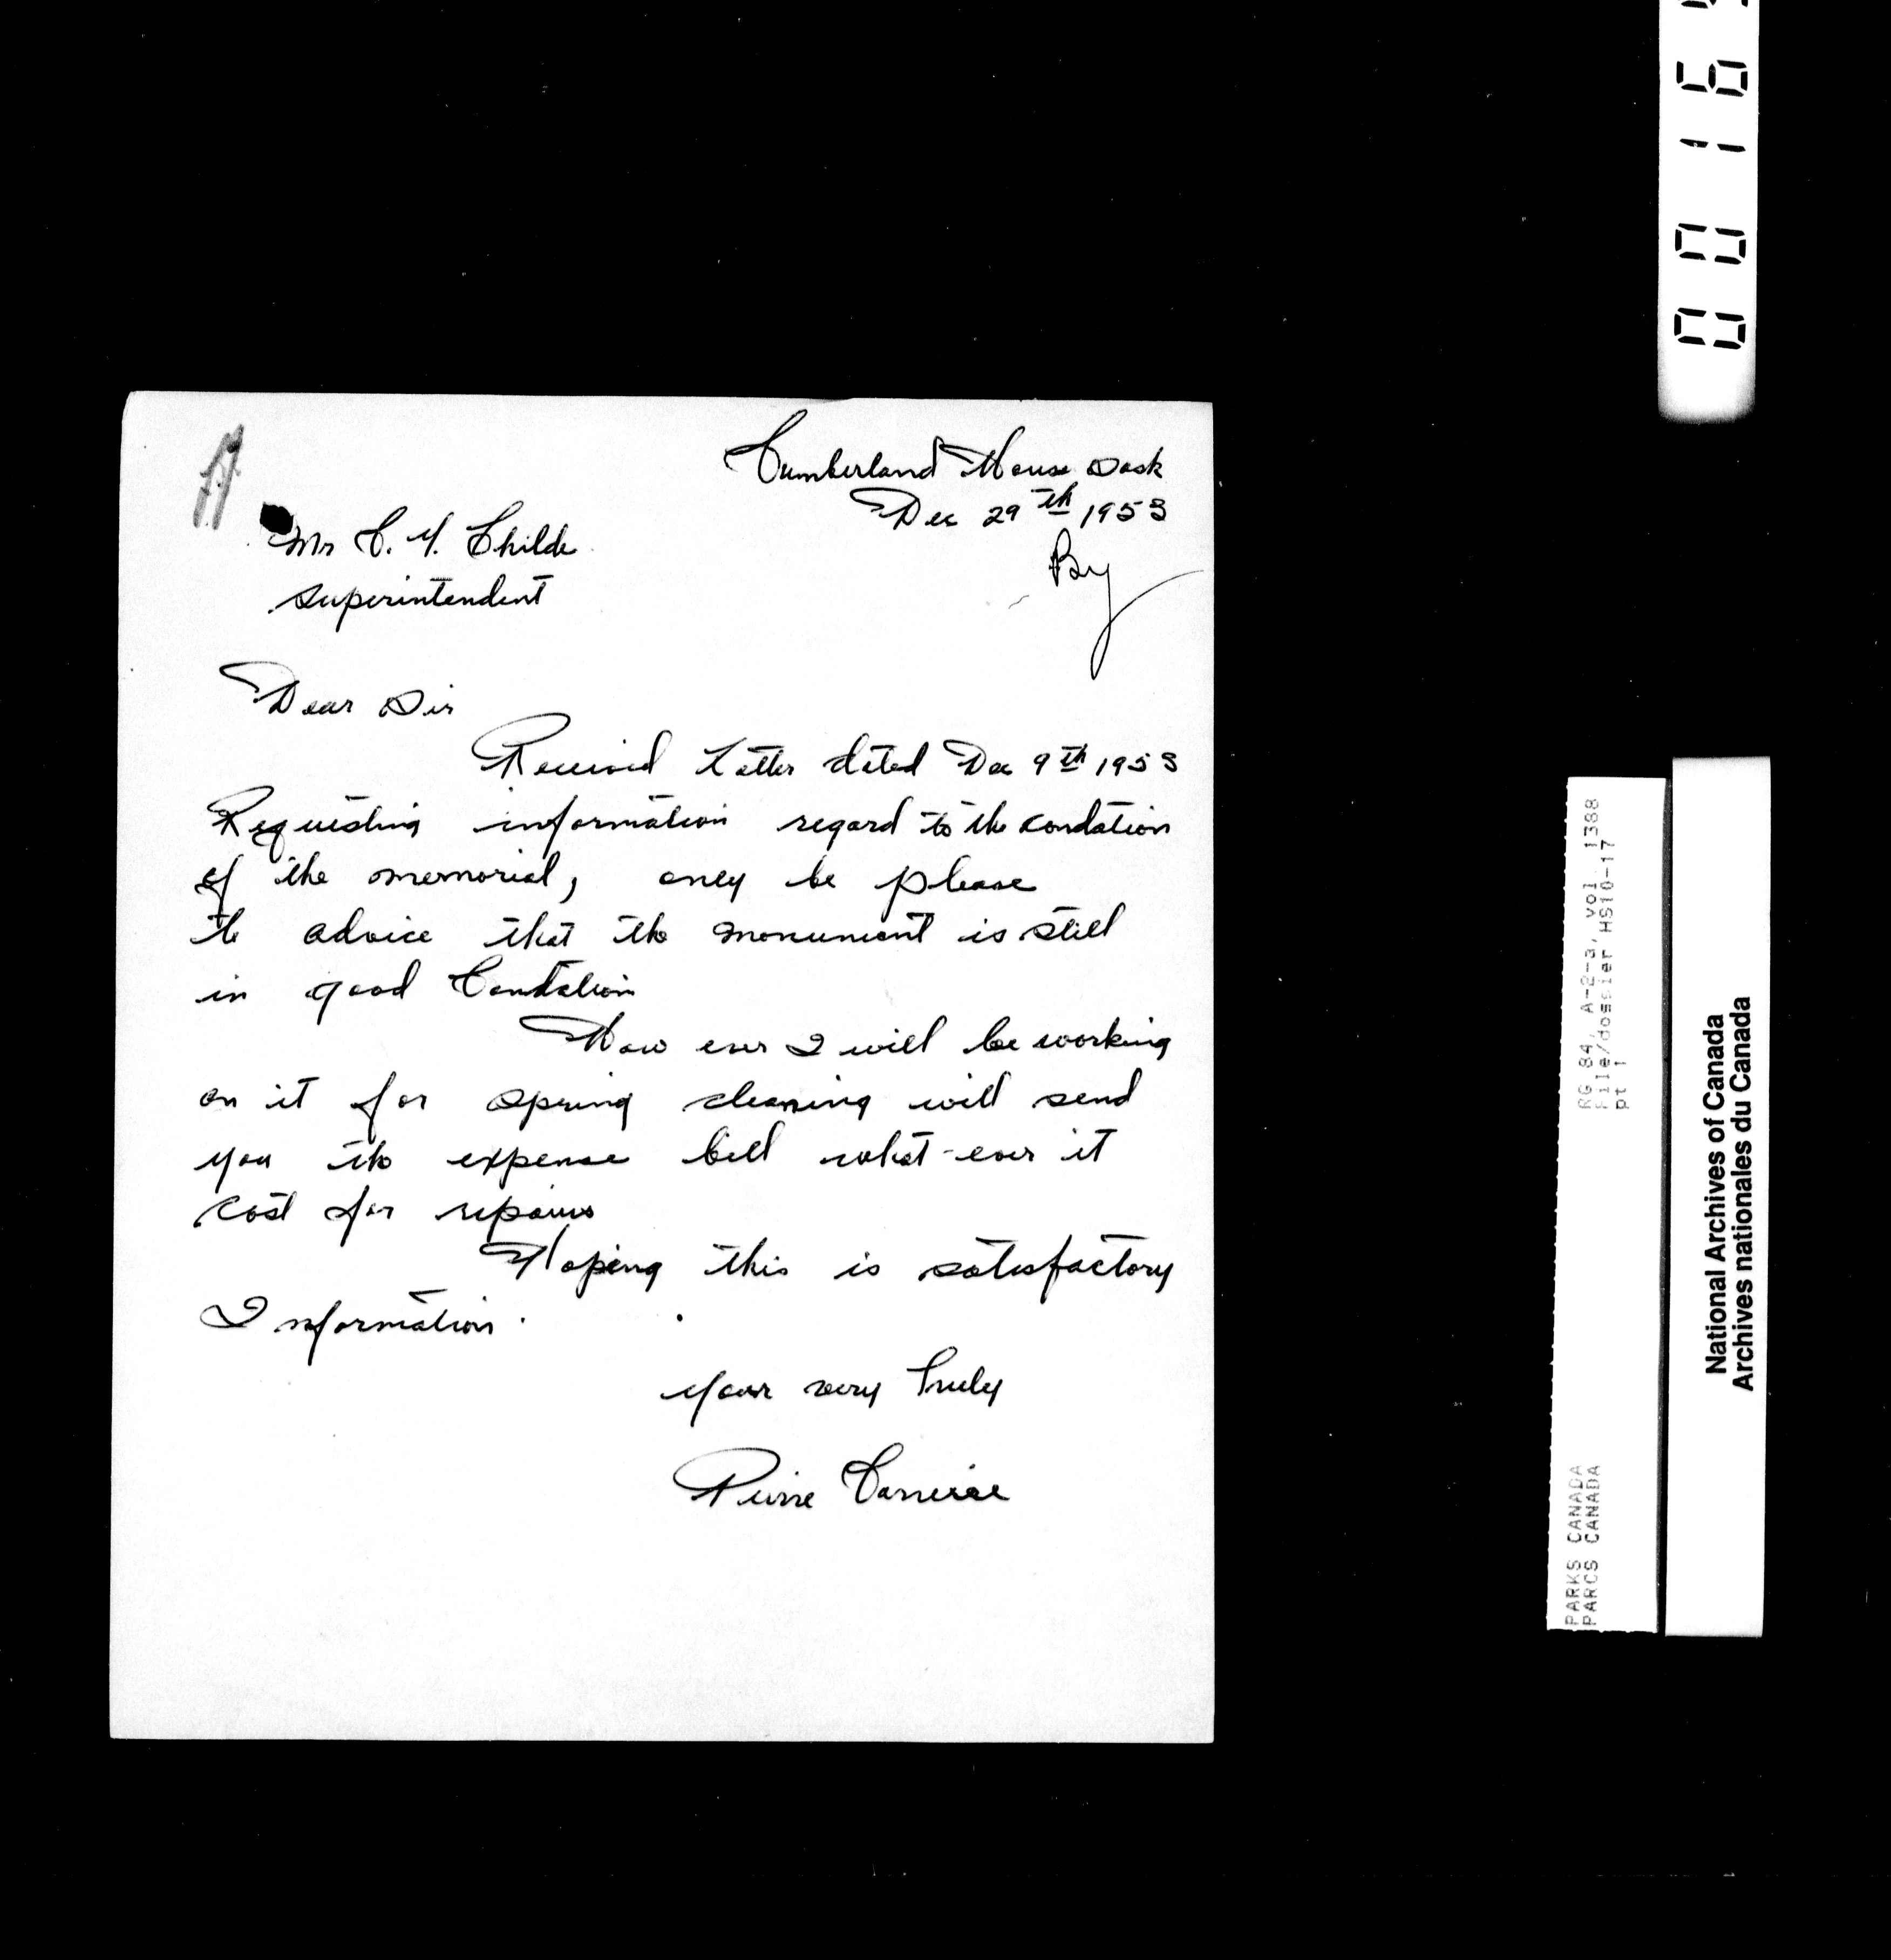 Cumberland House Sask
Dec 29th 1953
By
Mr C. Y. Childe
Superintendent
Dear Sir
Received Letter dated Dec 9th 1953
Requesting information regard to the condation
of the memorial, be please
to advice that the monument is still
in good Condation
How ever I will be working
on it for spring cleaning will send
you the expense bill what-ever it
cost for repairs
Hoping this is satisfactory
Information.
your very Truly
Pierre Carriere
RG 84, A-2-a, vol. 1388
File/dossier HS10-17
pt 1
PARKS CANADA
PARCS CANADA
National Archives of Canada
Archives nationales du Canada